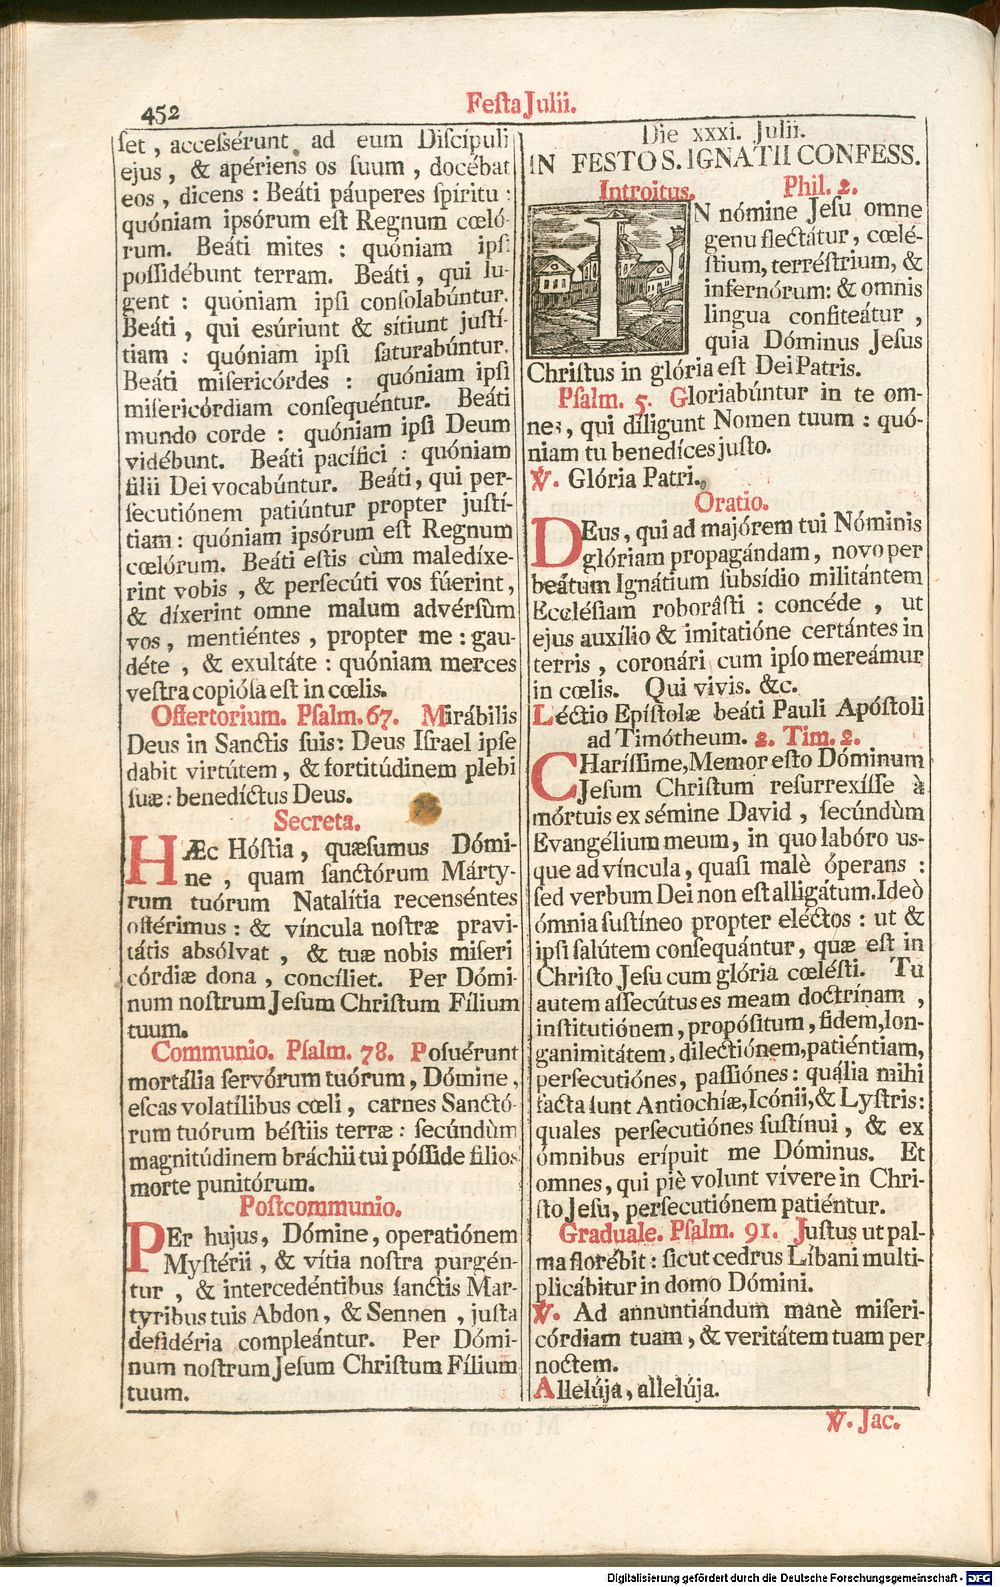 452
Festa Julii.
ſet, acceſſérunt ad eum Diſcípuli
ejus, & apériens os ſuum, docébat
eos, dicens: Beáti páuperes ſpíritu:
quóniam ipsórum eſt Regnum cœló-
rum. Beáti mites: quóniam ipſi
poſſidébunt terram. Beáti, qui lu-
gent: quóniam ipſi conſolabúntur.
Beáti, qui esúriunt & sítiunt juſtí-
tiam: quóniam ipſi ſaturabúntur.
Beáti miſericórdes: quóniam ipſi
miſericórdiam conſequéntur. Beáti
mundo corde: quóniam ipſi Deum
vidébunt. Beáti pacífici: quóniam
filii Dei vocabúntur. Beáti, qui per-
ſecutiónem patiúntur propter juſtí-
tiam: quóniam ipsórum eſt Regnum
cœlórum. Beáti eſtis cùm maledíxe-
rint vobis, & perſecúti vos fúerint,
& díxerint omne malum advérſùm
vos, mentiéntes, propter me: gau-
déte, & exultáte: quóniam merces
veſtra copióſa eſt in cœlis.
Offertorium. Pſalm. 67. Mirábilis
Deus in Sanctis ſuis: Deus Iſrael ipſe
dabit virtútem, & fortitúdinem plebi
ſuæ: benedíctus Deus.
Secreta.
HÆc Hóſtia, quæſumus Dómi-
ne, quam ſanctórum Márty-
rum tuórum Natalítia recenséntes
offérimus: & víncula noſtræ pravi-
tátis absólvat, & tuæ nobis miſeri
córdiæ dona, concíliet. Per Dómi-
num noſtrum Jeſum Chriſtum Fílium
tuum.
Communio. Pſalm. 78. Poſuérunt
mortália ſervórum tuórum, Dómine,
eſcas volatílibus cœli, carnes Sanctó-
rum tuórum béſtiis terræ: ſecúndùm
magnitúdinem bráchii tui póſſide filios
morte punitórum.
Poſtcommunio.
PEr hujus, Dómine, operatiónem
Myſtérii, & vítia noſtra purgén-
tur, & intercedéntibus ſanctis Mar-
tyribus tuis Abdon, & Sennen, juſta
deſidéria compleántur. Per Dómi-
num noſtrum Jeſum Chriſtum Fílium
tuum.
Die xxxi. Julii.
IN FESTO S. IGNATII CONFESS.
Introitus. Phil. 2.
IN nómine Jeſu omne
genu flectátur, cœlé-
ſtium, terréſtrium, &
infernórum: & omnis
lingua confiteátur,
quia Dóminus Jeſus
Chriſtus in glória eſt Dei Patris.
Pſalm. 5. Gloriabúntur in te om-
nes, qui díligunt Nomen tuum: quó-
niam tu benedíces juſto.
℣. Glória Patri.
Oratio.
DEus, qui ad majórem tui Nóminis
glóriam propagándam, novo per
beátum Ignátium ſubſídio militántem
Eccléſiam roboráſti: concéde, ut
ejus auxílio & imitatióne certántes in
terris, coronári cum ipſo mereámur
in cœlis. Qui vivis. &c.
Léctio Epíſtolæ beáti Pauli Apóſtoli
ad Timótheum. 2. Tim. 2.
CHaríſſime, Memor eſto Dóminum
Jeſum Chriſtum reſurrexíſſe à
mórtuis ex sémine David, ſecúndùm
Evangélium meum, in quo labóro us-
que ad víncula, quaſi malè óperans:
ſed verbum Dei non eſt alligátum. Ideò
ómnia ſuſtíneo propter eléctos: ut &
ipſi ſalútem conſequántur, quæ eſt in
Chriſto Jeſu cum glória cœléſti. Tu
autem aſſecútus es meam doctrínam,
inſtitutiónem, propóſitum, fidem, lon-
ganimitátem, dilectiónem, patiéntiam,
perſecutiónes, paſſiónes: quália mihi
facta ſunt Antiochíæ, Icónii, & Lyſtris:
quales perſecutiónes ſuſtínui, & ex
ómnibus erípuit me Dóminus. Et
omnes, qui piè volunt vívere in Chri-
ſto Jeſu, perſecutiónem patiéntur.
Graduale. Pſalm. 91. Juſtus ut pal-
ma florébit: ſicut cedrus Líbani multi-
plicábitur in domo Dómini.
℣. Ad annuntiándum manè miſeri-
córdiam tuam, & veritátem tuam per
noctem.
Allelúja, allelúja.
℣. Jac.
Digitalisierung gefördert durch die Deutsche Forschungsgemeinschaft - DFG